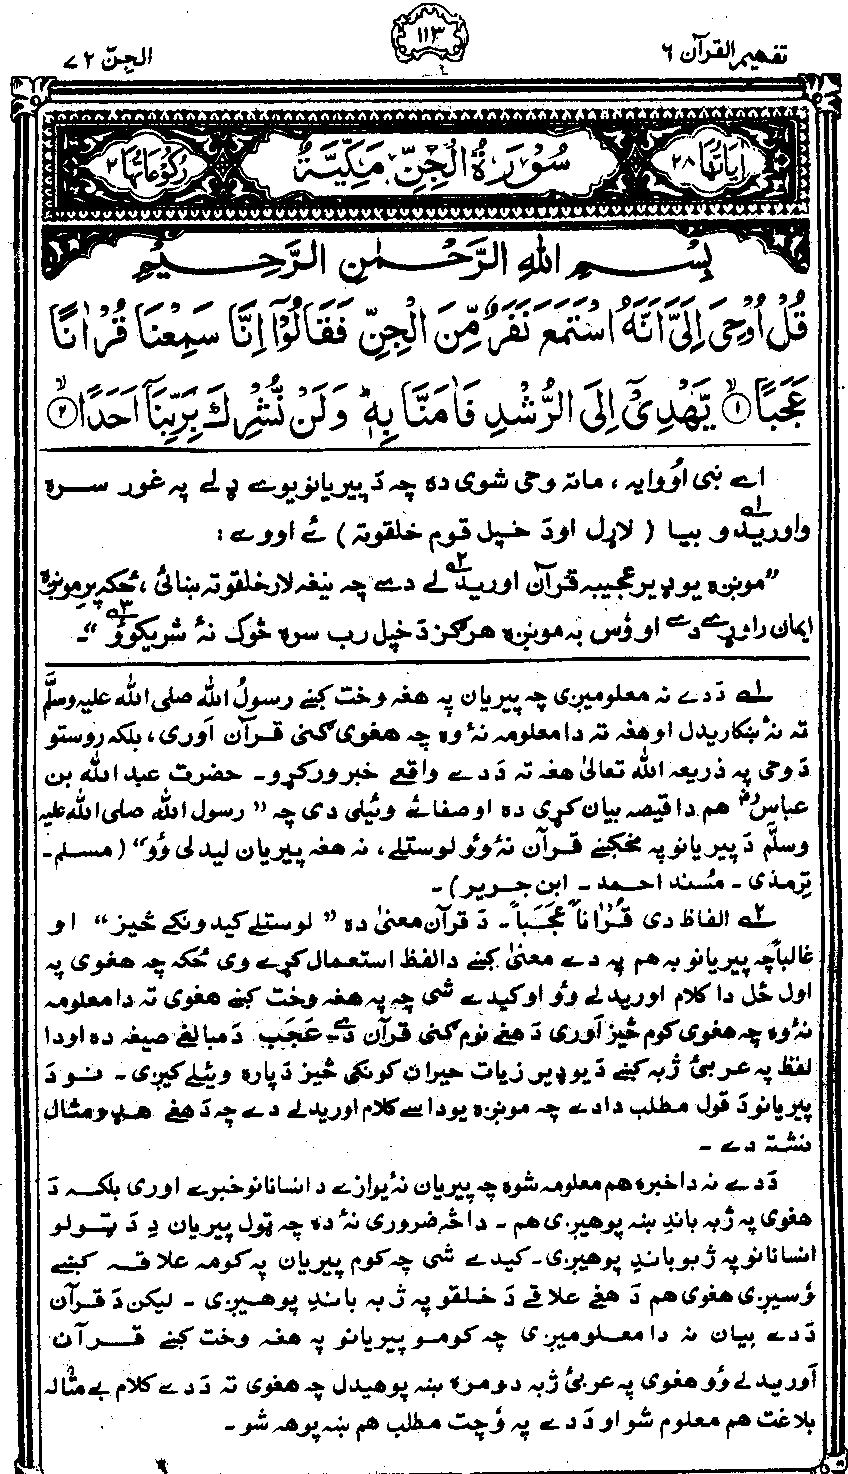 تفهيم القرآن ۶
۱۱۳
الجنّ ۷۲
اٰيَاتُهَا ۲۸
سُوْرَةُ الْجِنِّ مَكِّيَّةٌ
رُكُوْعَاتُهَا ۲
بِسْمِ اللهِ الرَّحْمٰنِ الرَّحِيْمِ
قُلْ اُوْحِيَ اِلَيَّ اَنَّهُ اسْتَمَعَ نَفَرٌ مِّنَ الْجِنِّ فَقَالُوْٓا اِنَّا سَمِعْنَا قُرْاٰنًا
عَجَبًا ۱ يَّهْدِيْٓ اِلَى الرُّشْدِ فَاٰمَنَّا بِهٖ ؕ وَلَنْ نُّشْرِكَ بِرَبِّنَآ اَحَدًا ۲
اے نبی اووایه ، ماته وحی شوی ده چه دَ پیریانو یوے ډلے په غور سره
واوریدو ۱ و بیا ( لاړل او دَ خپل قوم خلقوته ) ئے اووے :
”مونږه یو ډیر عجیبه قرآن اوریدلے ۲ دے چه نیغه لار خلقوته ښائی ، ځکه پرِ مونږه
ایمان راوړے دے او ؤس به مونږه هرګز دَ خپل رب سره څوک نهٔ شریکوؤ ۳“۔
۱ دَ دے نه معلومیږی چه پیریان په هغه وخت کښے رسولُ الله صلی الله علیه وسلَّم
ته نهٔ ښکاریدل او هغه ته دا معلومه نهٔ وه چه هغوی ګنی قرآن آوری ، بلکه روستو
دَ وحی په ذریعه الله تعالیٰ هغه ته دَ دے واقعے خبر ورکړو۔ حضرت عبد الله بن
عباسؓ هم دا قیصه بیان کړی ده او صفائے وئیلی دی چه ” رسول الله صلی الله علیه
وسلَّم دَ پیریانو په مخکښے قرآن نهٔ وئو لوستلے ، نه هغه پیریان لیدلی وُو“ (مسلم۔
ترمذی ۔ مُسند احمد ۔ ابن جریر) ۔
۲ الفاظ دی قُرْاٰناً عَجَباً ۔ دَ قرآن معنیٰ ده ” لوستلے کیدونکے څیز “ او
غالباً چه پیریانو به هم په دے معنیٰ کښے دا لفظ استعمال کړے وی ځکه چه هغوی په
اول ځل دا کلام اوریدلے وؤ او کیدے شی چه په هغه وخت کښے هغوی ته دا معلومه
نهٔ وه چه هغوی کوم څیز آوری دَ هغے نوم ګنی قرآن دے ۔ عَجَب دَ مبالغے صیغه ده او دا
لفظ په عربئ ژبه کښے دَ یو ډیر زیات حیران کونکی څیز دَ پاره وئیلے کیږی ۔ نو دَ
پیریانو دَ قول مطلب دا دے چه مونږه یو داسے کلام اوریدلے دے چه دَ هغے هډو مثال
نشته دے ۔
دَ دے نه دا خبره هم معلومه شوه چه پیریان نهٔ یوازے د انسانانو خبرے اوری بلکه دَ
هغوی په ژبه باندِ ښه پوهیږی هم ۔ دا څه ضروری نهٔ ده چه ټول پیریان دِ دَ ټولو
انسانانو په ژبو باندِ پوهیږی۔ کیدے شی چه کوم پیریان په کومه علاقه کښے
ؤسیږی هغوی هم دَ هغے علاقے دَ خلقو په ژبه باندِ پوهیږی ۔ لیکن دَ قرآن
دَ دے بیان نه دا معلومیږی چه کومو پیریانو په هغه وخت کښے قرآن
آوریدلے وُو هغوی په عربئ ژبه دومره ښه پوهیدل چه هغوی ته دَ دے کلام بے مثاله
بلاغت هم معلوم شو او دَ دے په وُچت مطلب هم ښه پوهه شو ۔